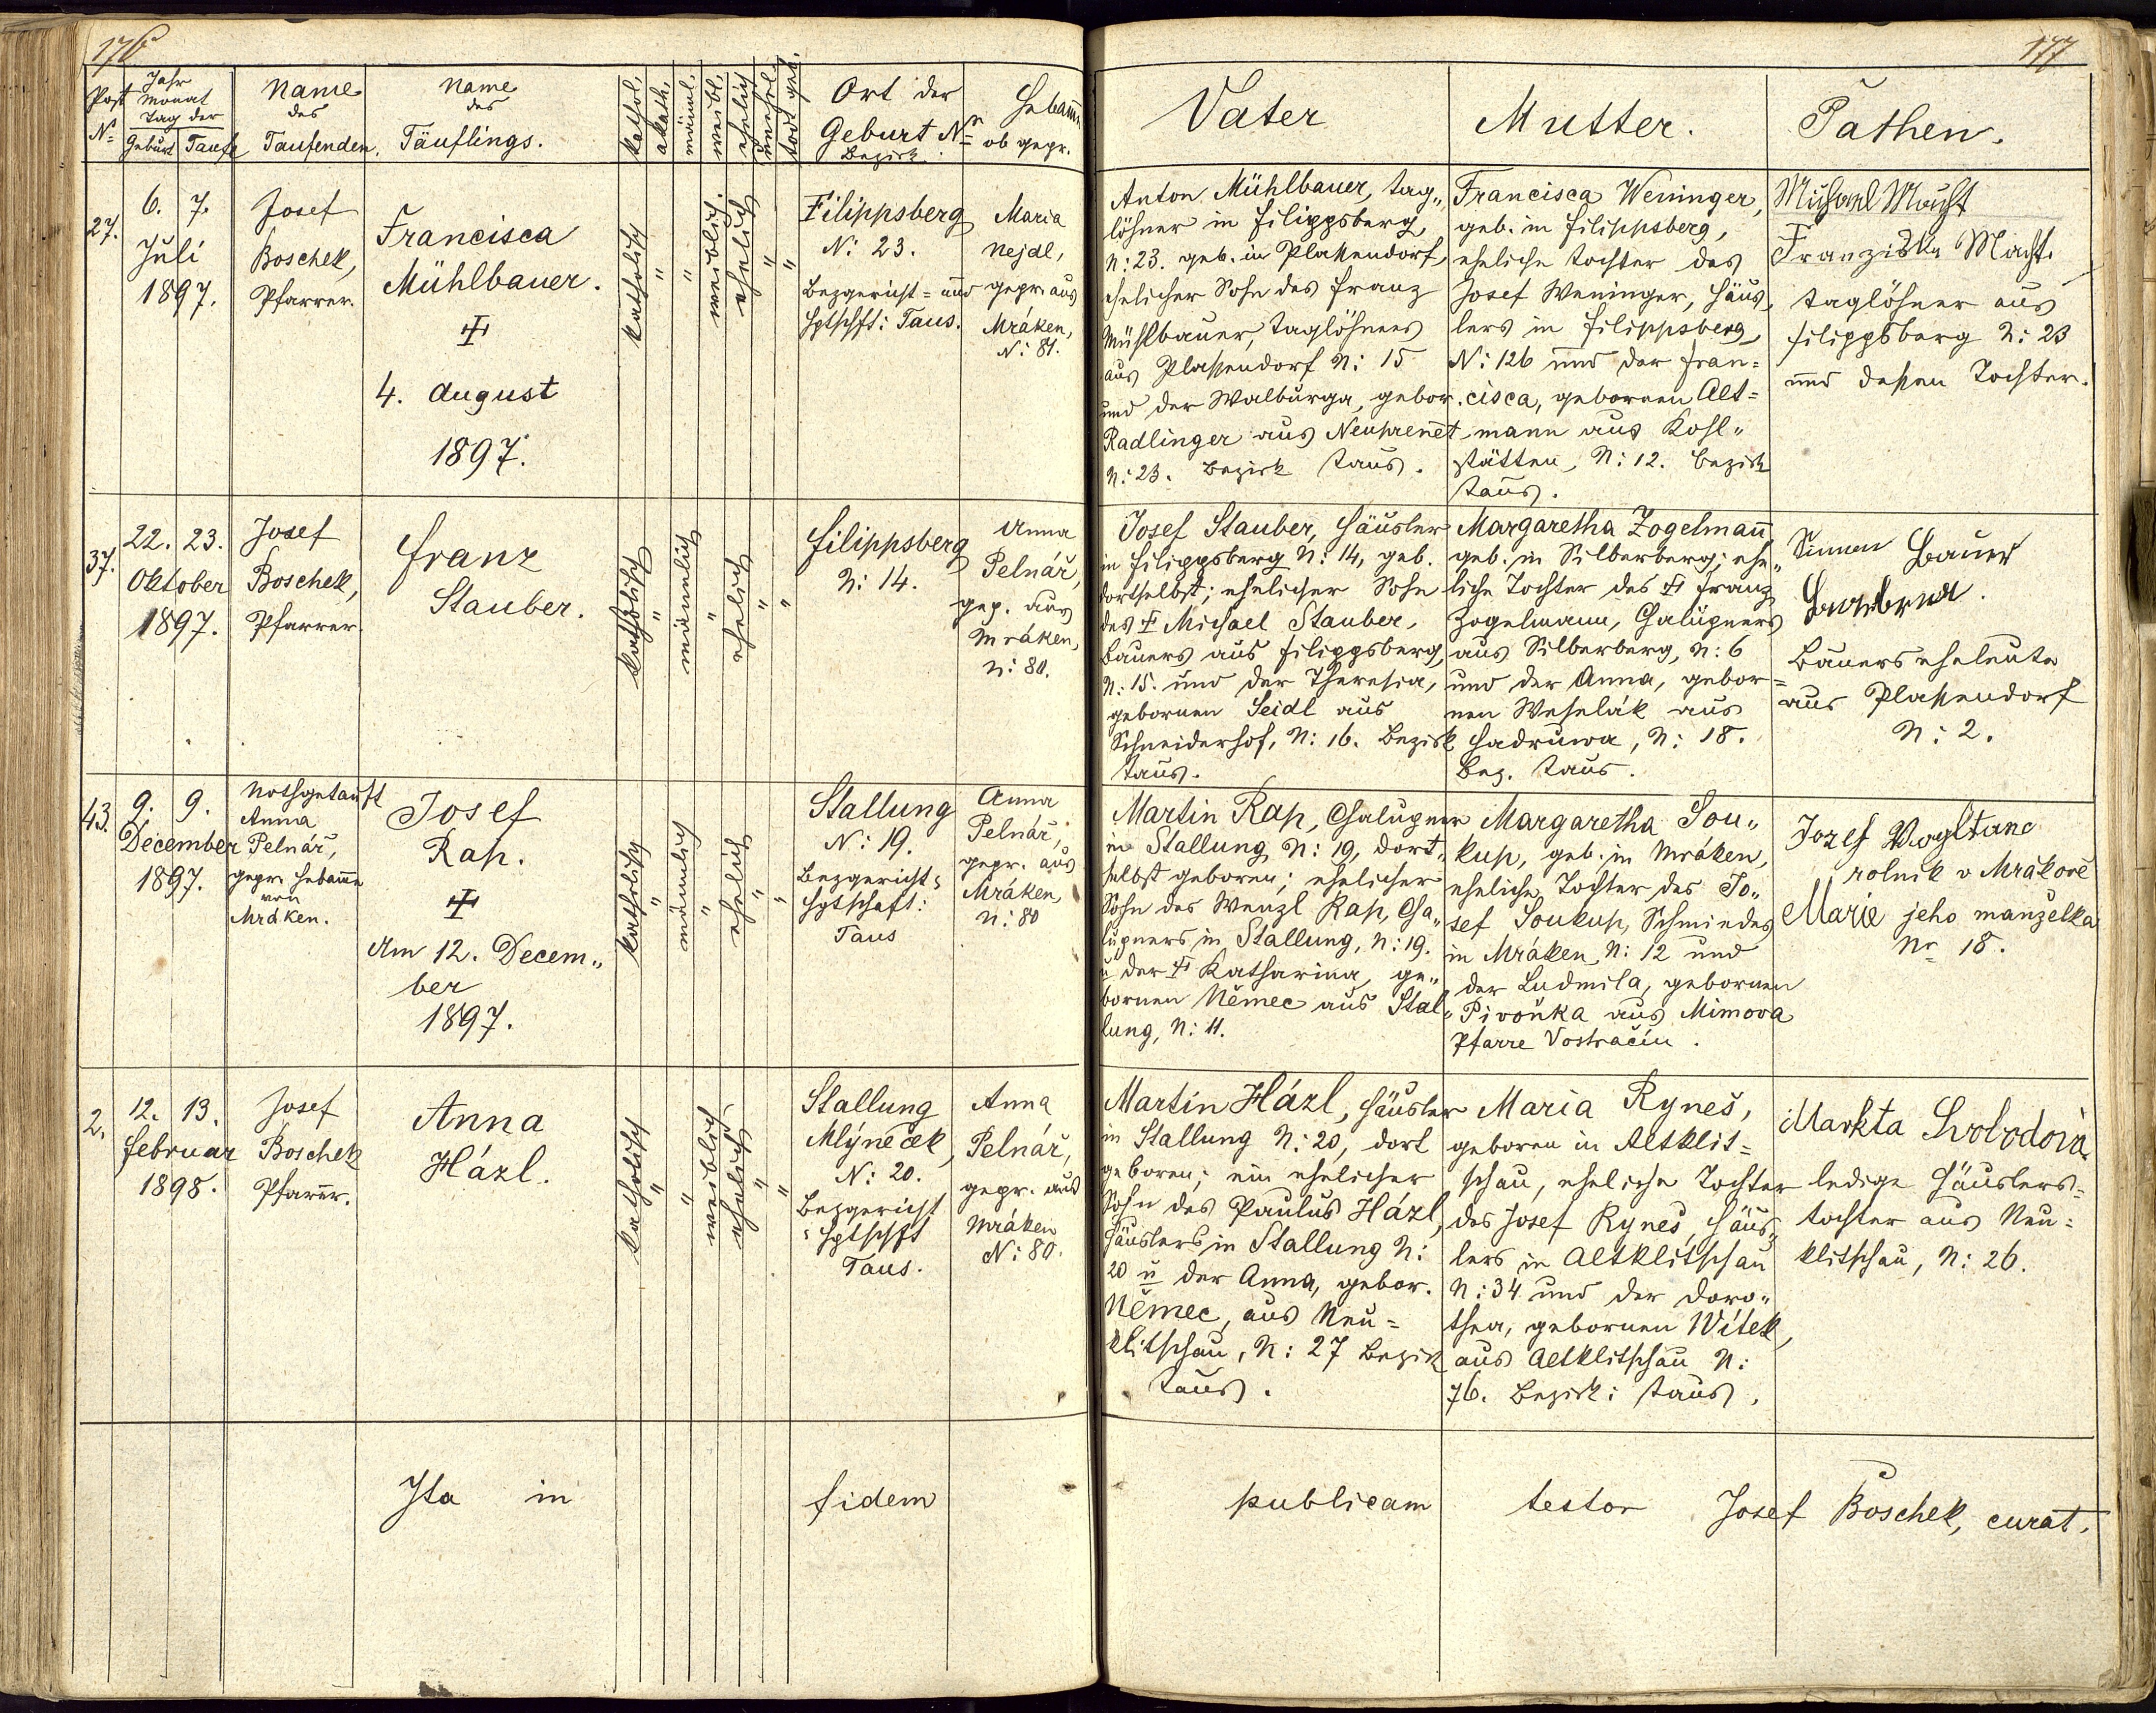 176
177
Post N:
Jahr
Monat
Tag der
Geburt
Taufe
Name
des
Taufenden.
Name
des
Täuflings.
kathol.
akath.
männl.
weibl.
ehelich
unehel.
todt geb.
Ort der
Geburt N:
Bezirk.
Hebamme
ob gepr.
Vater
Mutter.
Pathen.
27.
6. 7.
Juli
1897.
Josef
Boschek,
Pfarrer.
Francisca
Mühlbauer.
4. August
1897.
katholisch
"
"
weiblich.
ehelich
"
"
Filippsberg
N: 23.
Bezgericht = und
Hptschft: Taus.
Maria
Nejdl,
gepr. aus
Mráken,
N: 81.
Anton Mühlbauer, Tag„
löhner in Filippsberg,
N: 23. geb. in Plassendorf,
ehelicher Sohn des Franz
Mühlbauer, Taglöhners
aus Plassendorf N: 15
und der Walburga, gebor.
Radlinger aus Neuprennet
N: 23. Bezirk Taus.
Francisca Weninger,
geb. in Filippsberg,
eheliche Tochter des
Josef Weninger, Häus„
lers in Filippsberg,
N: 126 und der Fran=
cisca, gebornen Alt=
mann aus Kohl„
stätten, N: 12. Bezirk
Taus.
Michael Macht
Franziska Macht.
Taglöhner aus
Filippsberg N: 23
und dessen Tochter.
37.
22. 23.
Oktober
1897.
Josef
Boschek,
Pfarrer
Franz
Stauber.
katholisch
"
männlich
"
ehelich
"
"
Filippsberg
N: 14.
Anna
Pelnář,
gep. aus
Mráken,
N: 80.
Josef Stauber, Häusler
in Filippsberg N: 14, geb.
dortselbst; ehelicher Sohn
des Michael Stauber,
Bauers aus Filippsberg,
N: 15. und der Theresia,
gebornen Seidl aus
Schneiderhof, N: 16. Bezirk
Taus.
Margaretha Zogelmann
geb. in Silberberg; ehe„
liche Tochter des Franz
Zogelmann, Chalupners
aus Silberberg, N: 6
und der Anna, gebor=
nen Weselák aus
Hadruwa, N: 18.
Bez. Taus.
Simon Bauer
Bauerseheleute
aus Plassendorf
N: 2.
43.
9. 9.
December
1897.
Nothgetauft
Anna
Pelnář,
gepr. Hebamme
von
Mráken.
Josef
Rap.
Am 12. Decem„
ber
1897.
katholisch
"
männlich
"
ehelich
"
"
Stallung
N: 19.
Bezgericht=
Hptschaft:
Taus
Anna
Pelnář,
gepr. aus
Mráken,
N: 80
Martin Rap, Chalupner
in Stallung N: 19, dort„
selbst geboren; ehelicher
Sohn des Wenzl Rap, Cha„
lupners in Stallung, N: 19.
u der Katharina, ge„
bornen Němec aus Stal„
lung, N: 11.
Margaretha Sou„
kup, geb. in Mráken,
eheliche Tochter des Jo„
sef Soukup, Schmiedes
in Mráken, N: 12 und
der Ludmila, gebornen
Pivoňka aus Mimova
Pfarre Vostračín.
Jozef Wogltanc
rolník v Mrákově
Marie jeho manželka
Nr 18.
2.
12. 13.
Februar
1898.
Josef
Boschek
Pfarrer.
Anna
Házl.
katholisch
"
"
weiblich
ehelich
"
"
Stallung
Mlýneček,
N: 20.
Bezgericht
= Hptschft
Taus.
Anna
Pelnář,
gepr. aus
Mráken
N: 80.
Martin Házl, Häusler
in Stallung N: 20, dort
geboren; ein ehelicher
Sohn des Paulus Házl,
Häuslers in Stallung N:
20 u der Anna, gebor.
Němec, aus Neu=
klitschau, N: 27 Bezirk
Taus.
Maria Ryneš,
geboren in Altklit=
schau, eheliche Tochter
des Josef Ryneš, Häus„
lers in Altklitschau
N: 34 und der Doro„
thea, gebornen Witek,
aus Altklitschau N:
76. Bezirk: Taus.
Markta Svobodova
ledige Häuslers=
tochter aus Neu=
klitschau, N: 26.
Ita in fidem publicam testor Josef Boschek, curat.